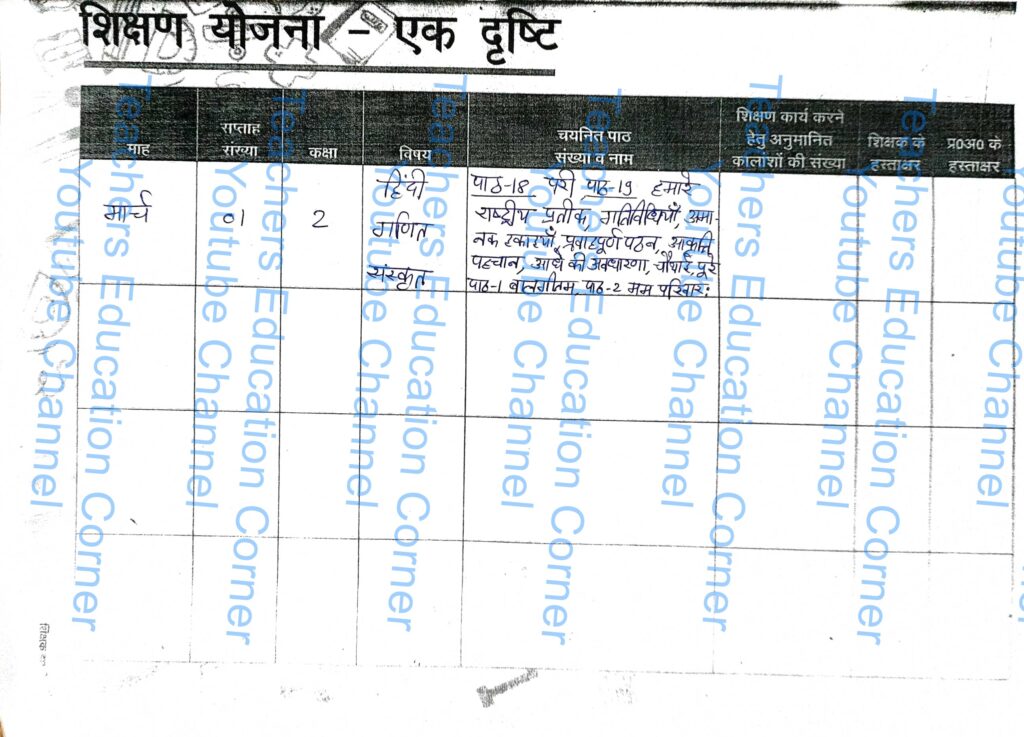 शिक्षण योजना - एक दृष्टि
माह
सप्ताह
संख्या
कक्षा
विषय
चयनित पाठ
संख्या व नाम
शिक्षण कार्य करने
हेतु अनुमानित
कालांशों की संख्या
शिक्षक के
हस्ताक्षर
प्र0अ0 के
हस्ताक्षर
मार्च
01
2
हिंदी
गणित
संस्कृत
पाठ-18 परी, पाठ-19 हमारे
राष्ट्रीय प्रतीक, गतिविधियाँ, अमा-
नक इकाइयाँ, प्रवाहपूर्ण पठन, आकृति
पहचान, आधे की अवधारणा, चौथाई, पूरे
पाठ-1 बालगीतम, पाठ-2 मम परिवार:
शिक्षक
Teachers Education Corner
Youtube Channel
Teachers Education Corner
Youtube Channel
Teachers Education Corner
Youtube Channel
Teachers Education Corner
Youtube Channel
Teachers Education Corner
Youtube Channel
Teachers Education Corner
Youtube Channel